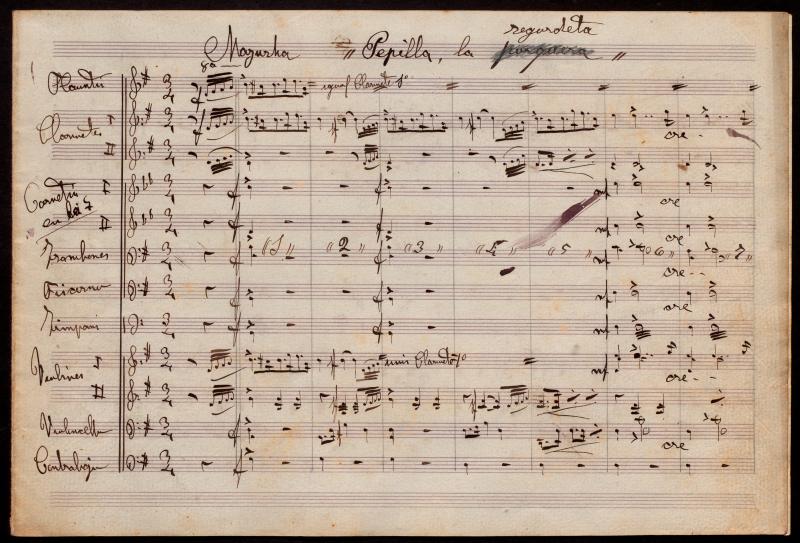 regordeta
Mazurka " Pepilla, la "
8ª
Flautin
igual Clarinete 1º
Clarinetes I
II
cre-
Cornetin I
en II
cre
cre
Trombones
"1" "2" "3" "4" "5" "6" "7"
cre--
Fiscorno
cre
Timpani
Violines I
unis Clarinete 1º
cre--
II
Violoncello
cre
Contrabajo